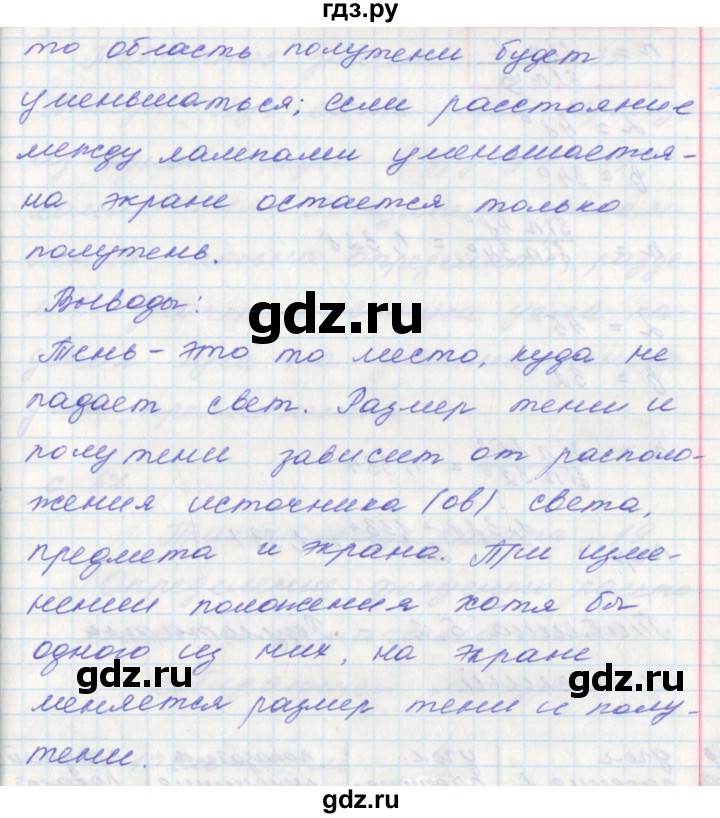 гдз.ру
то область полутени будет
уменьшаться; если расстояние
между лампами уменьшается-
на экране остается только
полутень.
Выводы:
gdz.ru
Тень - это то место, куда не
падает свет. Размер тени и
полутени зависит от располо-
жения источника (ов) света,
предмета и экрана. При изме-
нении положения хотя бы
одного из них, на экране
gdz.ru
gdz.ru
меняется размер тени и полу-
тени.
gdz.ru